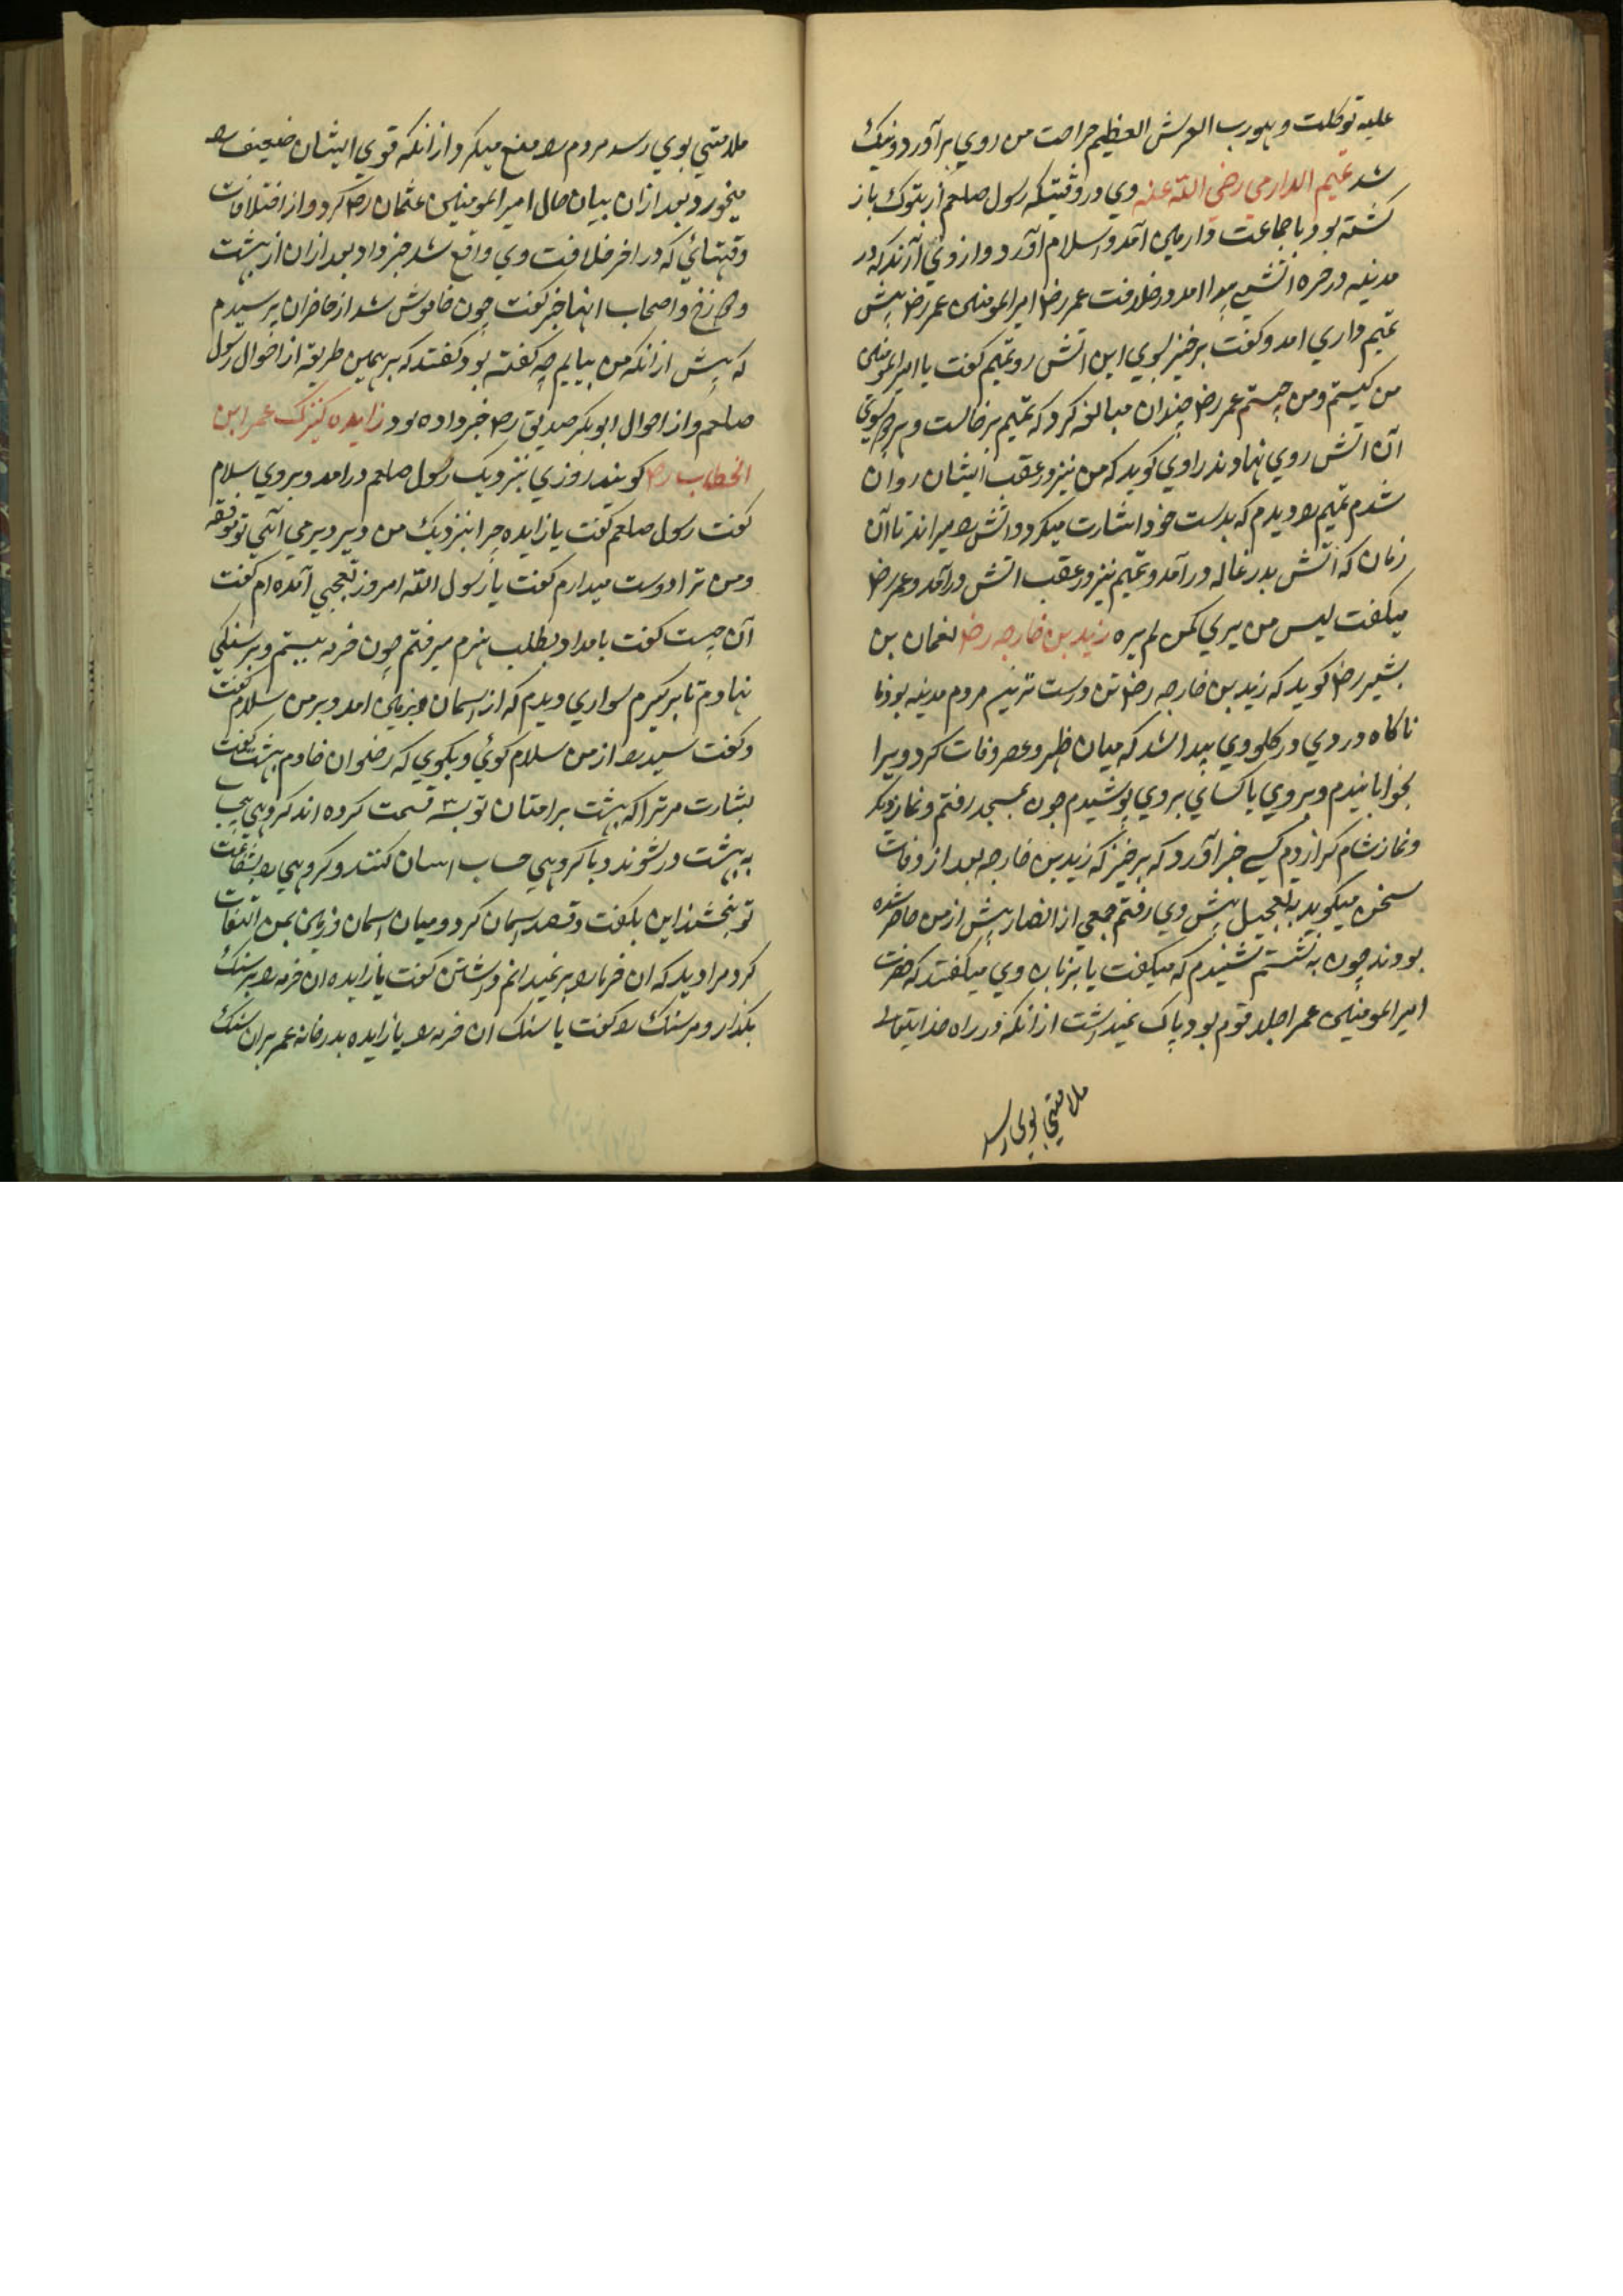 علیه توکلت و هو رب العرش العظیم جراحت من روی برآورد و نیک
شد تمیم الداری رضی الله عنه وی در وقتیکه رسول صلعم از تبوک باز
کشته بود با جماعت داریین آمد و اسلام آورد و از وی آرند که در
مدینه در حره اتشی پیدا امد در خلافت عمر رض امیرالمومنین عمر رض پیش
تمیم داری امد و کفت برخیز بسوی این اتش رو تمیم کفت یا امیرالمومنین
من کیستم و من چیستم عمر رض چندان مبالغه کرد که تمیم برخاست و هر دو بسوی
آن اتش روی نهادند راوی کوید که من نیز در عقب ایشان روان
شدم تمیم را دیدم که بدست خود اشارت میکرد و اتش را میراند تا آن
زمان که اتش بدرغاله درآمد و تمیم نیز در عقب اتش درآمد و عمر رض
میکفت لیس من یری کمن لم یره زید بن خارجه رض نعمان بن
بشیر رض کوید که زید بن خارجه رض تن درست ترین مردم مدینه بود
ناکاه دردی در کلوی وی پیدا شد که میان ظهر و عصر وفات کرد ویرا
بخوابانیدم و بروی یا کسای بروی پوشیدم چون بمسجد رفتم و نماز دیکر
و نماز شام کزاردم کسی خبر آورد که برخیز که زید بن خارجه بعد از وفات
سخن میکوید بتعجیل پیش وی رفتم جمعی از انصار پیش از من حاضر شده
بودند چون به نشستم شنیدم که میکفت یا بر زبان وی میکفتند که حضرت
امیرالمومنین عمر اجلد قوم بود پاک نمیداشت از انکه در راه خدایتعالی
ملامتی بوی رسد
ملامتی بوی رسد مردم را منع میکرد از انکه قوی ایشان ضعیف را
میخورد و بعد از ان بیان حال امیرالمومنین عثمان رض کرد و از اختلافات
وقتهائی که در اخر خلافت وی واقع شد خبر داد بعد از ان از بهشت
و دوزخ و اصحاب انها خبر کفت چون خاموش شد از حاضران پرسیدم
که پیش از انکه من بیایم چه کفته بود کفتند که بر همین طریقه از احوال رسول
صلعم و از احوال ابوبکر صدیق رض خبر داده بود زایده کنیزک عمر ابن
الخطاب رض کویند روزی بنزدیک رسول صلعم درامد و بروی سلام
کفت رسول صلعم کفت یا زایده چرا بنزدیک من دیر دیر می آئی تو توفقه
و من ترا دوست میدارم کفت یا رسول الله امروز بتعجبی آمده ام کفت
آن چیست کفت بامداد بطلب هیزم میرفتم چون خرمه ببستم و بر سنکی
نهادم تا بر کیرم سواری دیدم که از اسمان بزمین امد و بر من سلام کفت
و کفت سید را از من سلام کوئی و بکوی که رضوان خادم بهشت کفت
بشارت مر ترا که بهشت بر امتان تو بسه قسمت کرده اند کروهی بیحساب
به بهشت در شوند و با کروهی حساب اسان کنند و کروهی را بشفاعت
تو بخشند این بکفت و قصد اسمان کرد و میان اسمان و زمین بمن التفات
کرد مرا دید که ان خرمه را بر نمیدانم داشتن کفت یا زایده ان خرمه را بر سنک
بکذار و مر سنک را کفت یا سنک ان خرمه را با زایده بدر خانه عمر بر ان سنک